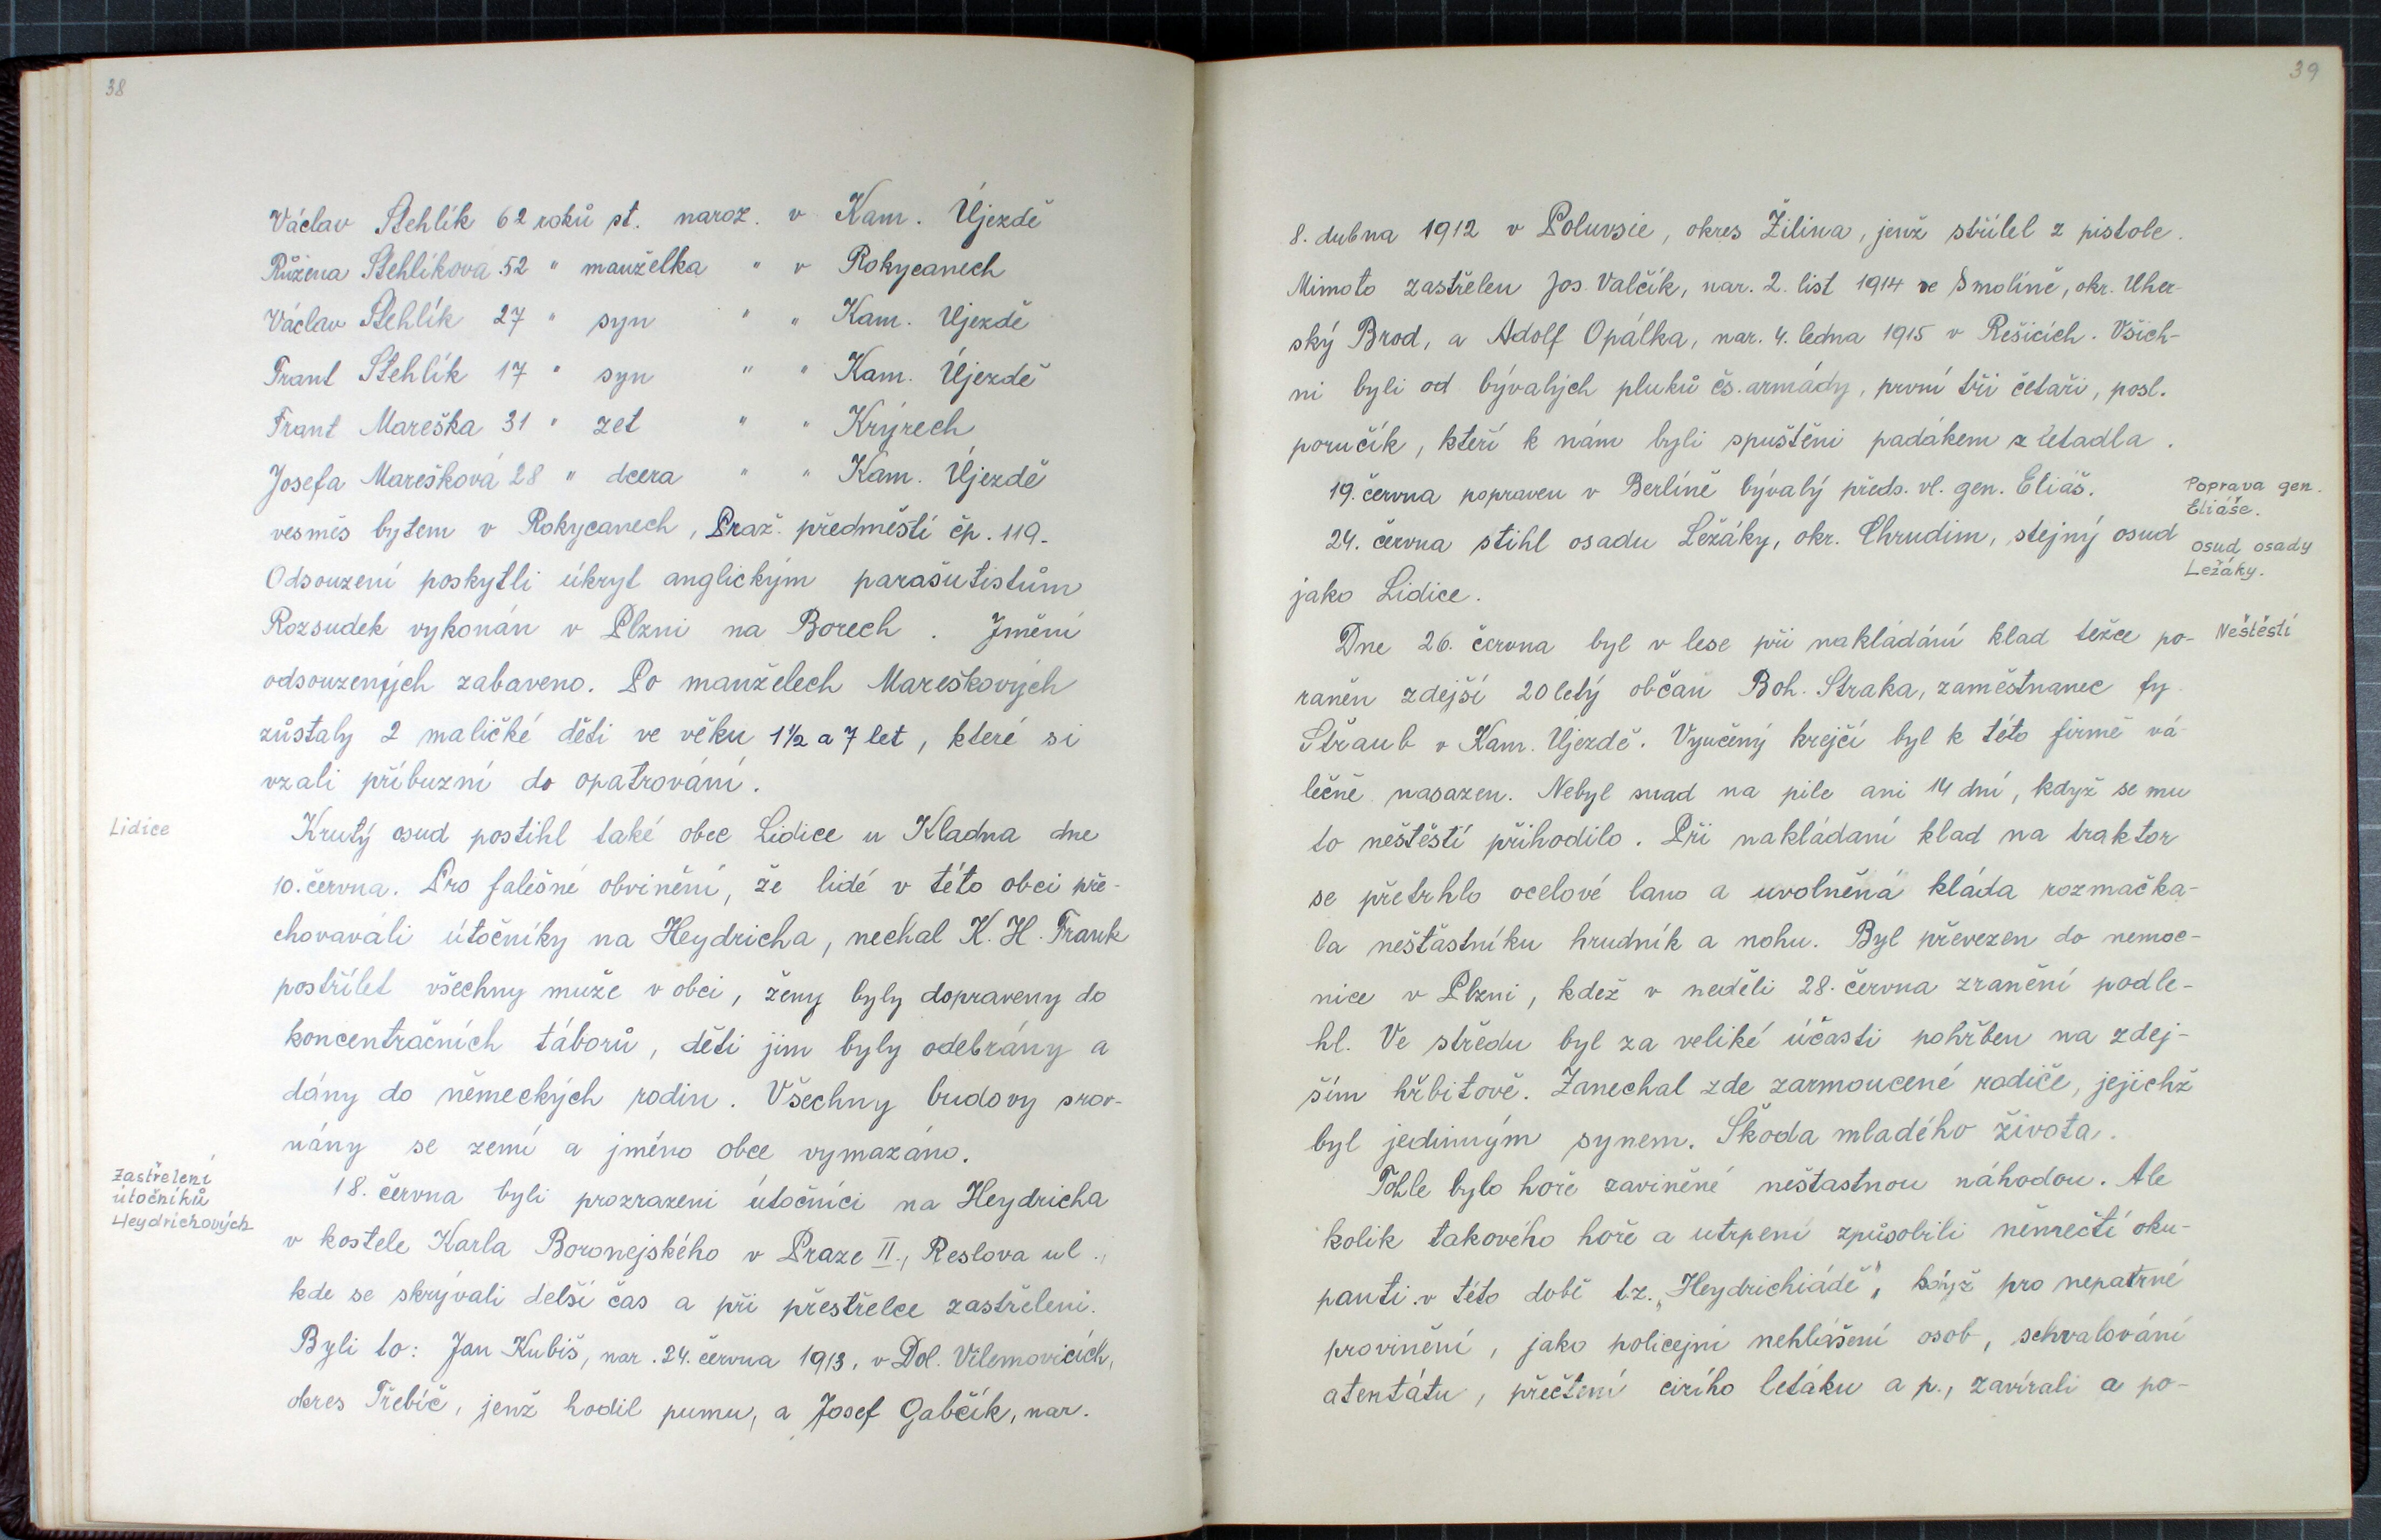 38
Václav Stehlík 62 roků st. naroz. v Kam. Újezdě
Růžena Stehlíková 52 " manželka " v Rokycanech
Václav Stehlík 27 " syn " " Kam. Újezdě
Frant Stehlík 17 " syn " " Kam. Újezdě
Frant Mareška 31 " zet " " Krýrech
Josefa Marešková 28 " dcera " " Kam. Újezdě
vesměs bytem v Rokycanech, Praž. předměstí čp. 119.
Odsouzení poskytli úkryt anglickým parašutistům
Rozsudek vykonán v Plzni na Borech. Jmění
odsouzených zabaveno. Po manželech Mareškových
zůstaly 2 maličké děti ve věku 1½ a 7 let, které si
vzali příbuzní do opatrování.
Lidice
Krutý osud postihl také obec Lidice u Kladna dne
10. června. Pro falešné obvinění, že lidé v této obci pře-
chovávali útočníky na Heydricha, nechal K. H. Frank
postřílet všechny muže v obci, ženy byly dopraveny do
koncentračních táborů, děti jim byly odebrány a
dány do německých rodin. Všechny budovy srov-
nány se zemí a jméno obce vymazáno.
Zastřelení
útočníků
Heydrichových
18. června byli prozrazeni útočníci na Heydricha
v kostele Karla Boromejského v Praze II., Reslova ul.,
kde se skrývali delší čas a při přestřelce zastřeleni.
Byli to: Jan Kubiš, nar. 24. června 1913, v Dol. Vilemovicích,
okres Třebíč, jenž hodil pumu, a Josef Gabčík, nar.
39
8. dubna 1912 v Poluvsie, okres Žilina, jenž střílel z pistole.
Mimoto zastřelen Jos. Valčík, nar. 2. list 1914 ve Smolíně, okr. Uher-
ský Brod, a Adolf Opálka, nar. 4. ledna 1915 v Rešicích. Všich-
ni byli od bývalých pluků čs. armády, první tři četaři, posl.
poručík, kteří k nám byli spuštěni padákem z letadla.
19. června popraven v Berlíně bývalý předs. vl. gen. Eliáš.
Poprava gen.
Eliáše.
24. června stihl osadu Ležáky, okr. Chrudim, stejný osud
jako Lidice.
Osud osady
Ležáky.
Dne 26. června byl v lese při nakládání klad těžce po-
Neštěstí
raněn zdejší 20letý občan Boh. Straka, zaměstnanec fy.
Štraub v Kam. Újezdě. Vyučený krejčí byl k této firmě vá-
lečně nasazen. Nebyl snad na pile ani 14 dní, když se mu
to neštěstí přihodilo. Při nakládaní klad na traktor
se přetrhlo ocelové lano a uvolněná kláda rozmačka-
la nešťastníku hrudník a nohu. Byl převezen do nemoc-
nice v Plzni, kdež v neděli 28. června zranění podle-
hl. Ve středu byl za veliké účasti pohřben na zdej-
ším hřbitově. Zanechal zde zarmoucené rodiče, jejichž
byl jediným synem. Škoda mladého života.
Tohle bylo hoře zaviněné nešťastnou náhodou. Ale
kolik takového hoře a utrpení způsobili němečtí oku-
panti v této době t.z. „Heydrichiádě", když pro nepatrné
provinění, jako policejní nehlášení osob, schvalování
atentátu, přečtení cizího letáku a p., zavírali a po-